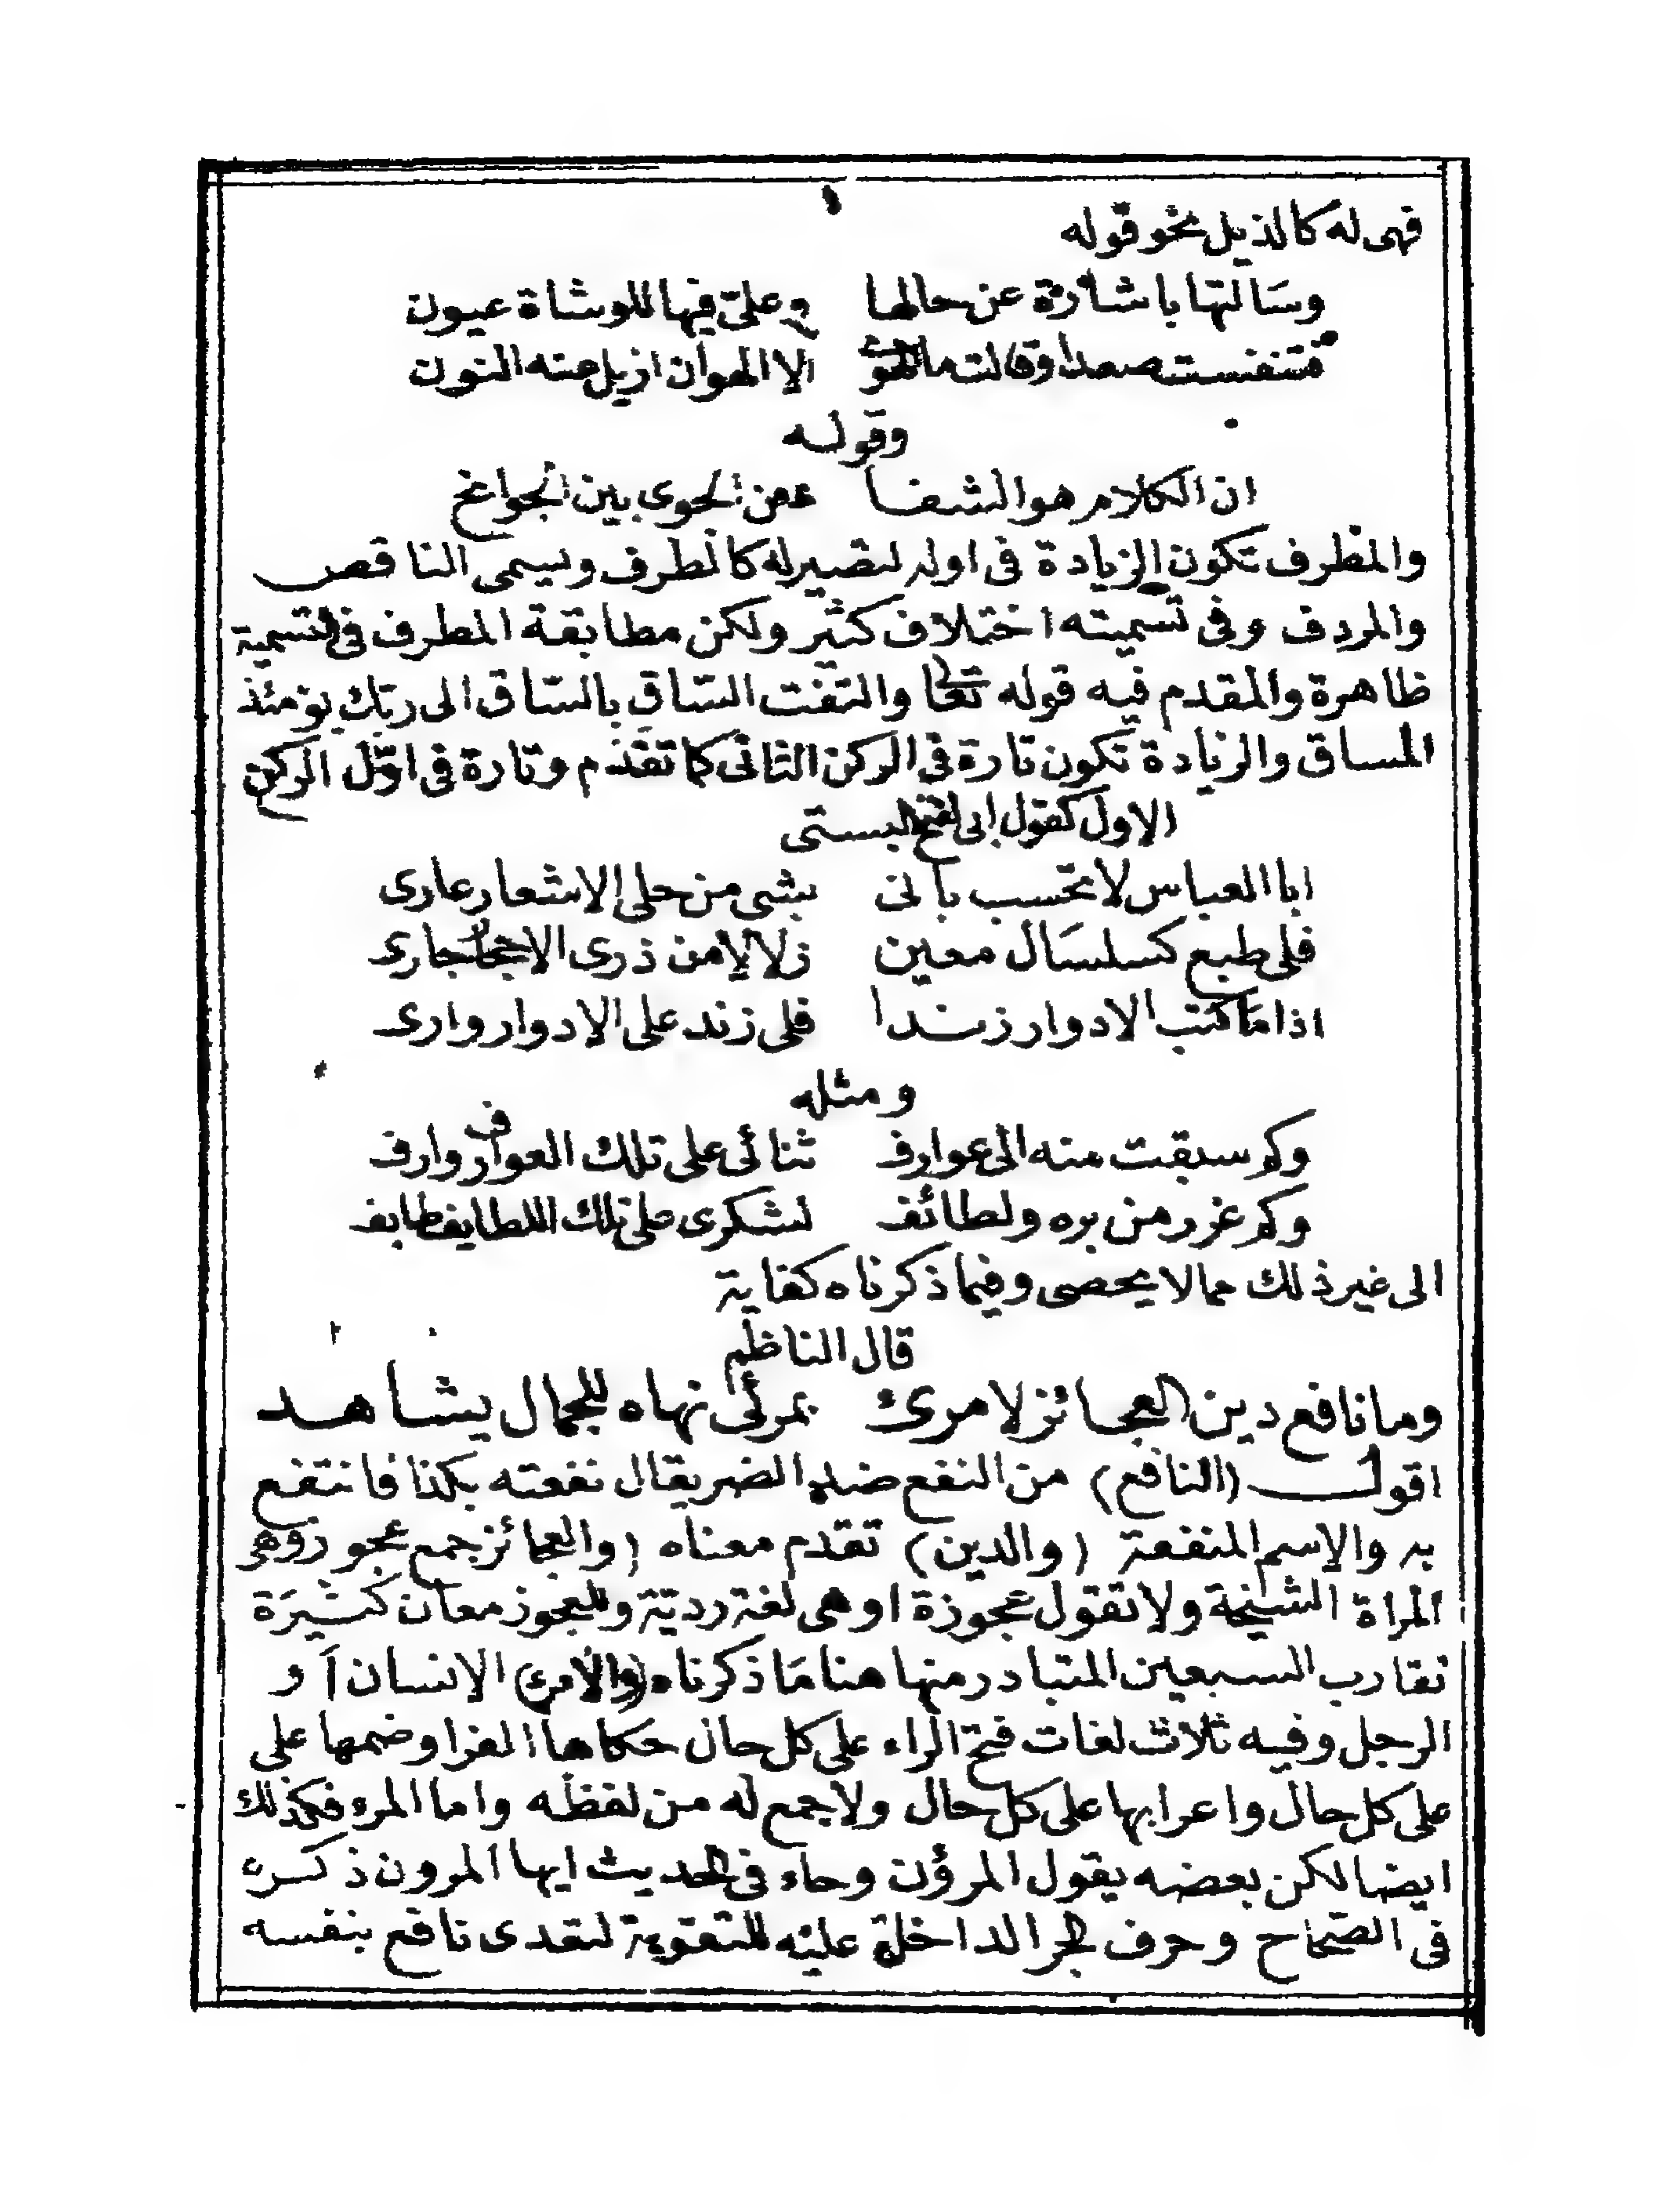 فهى له كالذيل نحو قوله
وسَالتها باشارة عن حالها وعلىّ فيها للوشاة عيون
فتنفست صعدا وقالت ما الهوى الا الهوان ازيل عنه النون
وقوله
ان الكلام هو الشفا ءمن الجوى بين الجوانح
والمطرف تكون الزيادة فى اوله لتصير له كالطرف ويسمى الناقص
والمردف وفى تسميته اختلاف كثير ولكن مطابقة المطرف فى التسمية
ظاهرة والمقدم فيه قوله تعالى والتفت السّاق بالسّاق الى ربّك يومئذ
المساق والزيادة تكون تارة فى الركن الثانى كما تقدم وتارة فى اوّل الركن
الاول كقول ابى الفتح البستى
ابا العباس لا تحسب بانى بشى من حلى الاشعار عارى
فلى طبع كسلسَال معين زلال من ذرى الاحجار جارى
اذا مَا اكتب الادوار زندا فلى زند على الادوار وارى
ومثله
وكم سبقت منه الى عوارف ثنائى على تلك العوارف وارف
وكم غرر من بره ولطائف لشكرى على تلك اللطايف طايف
الى غير ذلك مما لا يحصى وفيما ذكرناه كفاية
قال الناظم
وما نافع دين العجائز لامرئ بمرئى نهاه للجمال يشاهد
اقول (النافع) من النفع ضد الضر يقال نفعته بكذا فانتفع
به والاسم المنفعة (والدين) تقدم معناه (والعجائز جمع عجوز وهى
المراة الشيخة ولا تقول عجوزة او هى لغة رديّة وللعجوز معان كثيرَة
تقارب السبعين المتبادر منها هنا مَا ذكرناه (والامرئ) الانسان اَو
الرجل وفيه ثلاث لغات فتح الراء على كل حال حكاها الفرا وضمها على
على كل حال واعرابها على كل حال ولا جمع له من لفظه واما المرء فكذلك
ايضا لكن بعضه يقول المرؤن وجاء فى الحديث ايها المرون ذكره
فى الصّحاح وحرف الجر الداخلة عليه للتقوية لتعدى نافع بنفسه